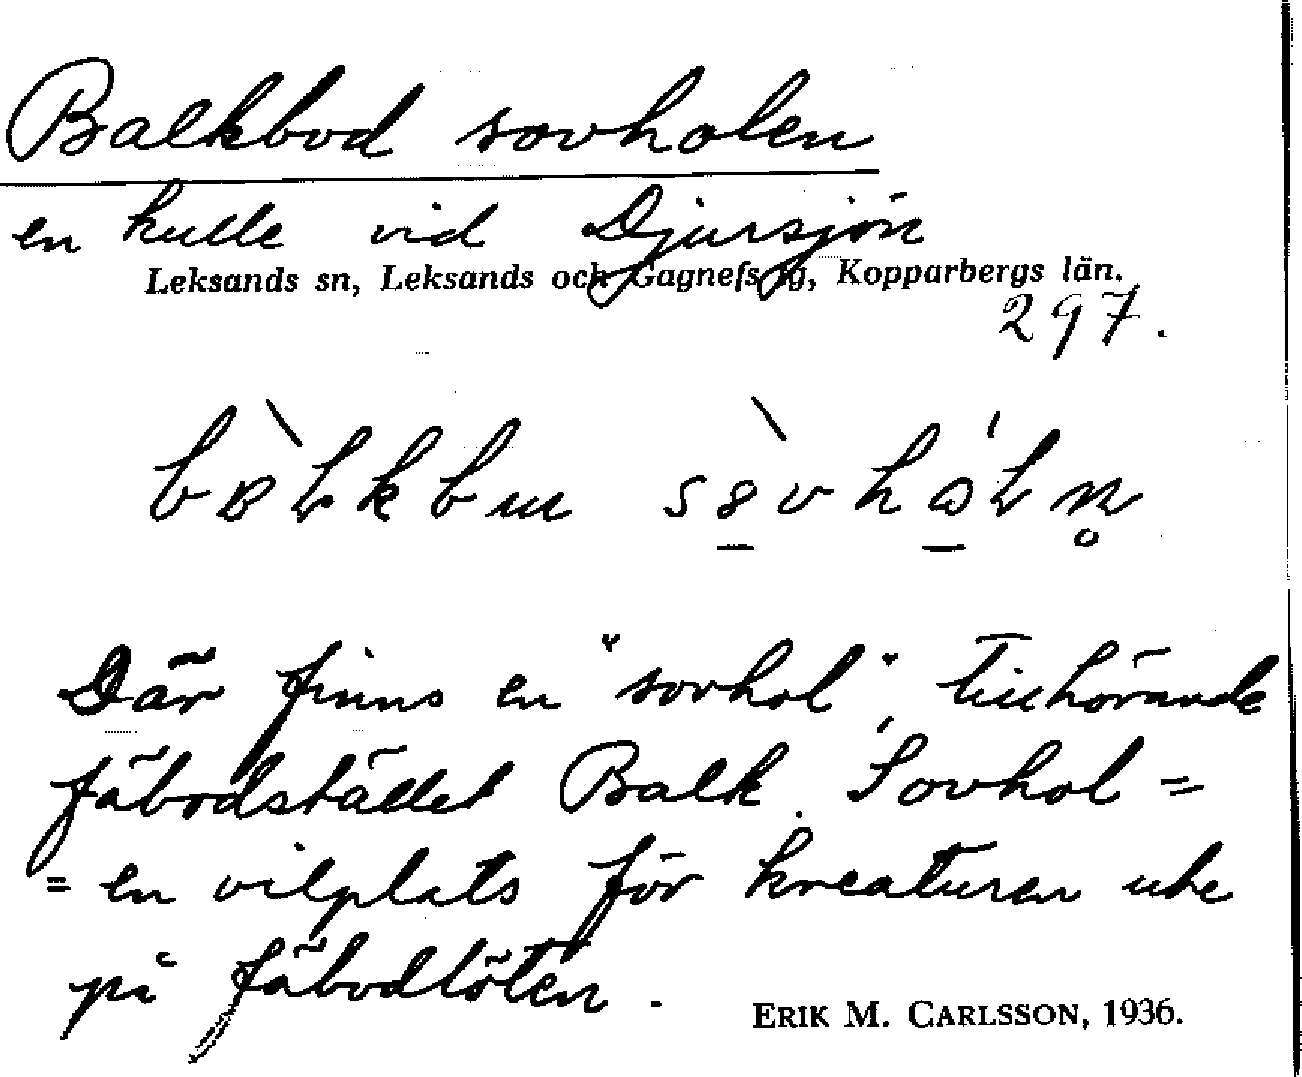 Balkbod sovholen
en kulle vid Djursjön
Leksands sn, Leksands och Gagnefs tg, Kopparbergs län.
297.
Där finns en "sovhol", tillhörande
fäbodstället Balk. Sovhol =
= en vilplats för kreaturen ute
på fäbodlöten.
ERIK M. CARLSSON, 1936.